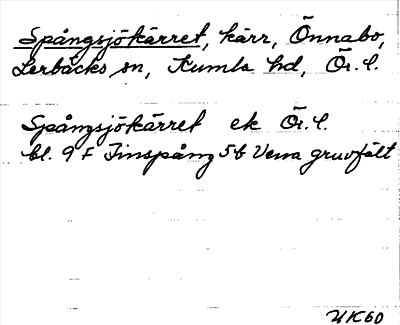 Spångsjökärret, kärr, Önnabo,
Lerbäcks sn, Kumla hd, Ör. l.
Spångsjökärret ek Ör. l.
bl. 9 F Finspång 5 b Vena gruvfält
UK60